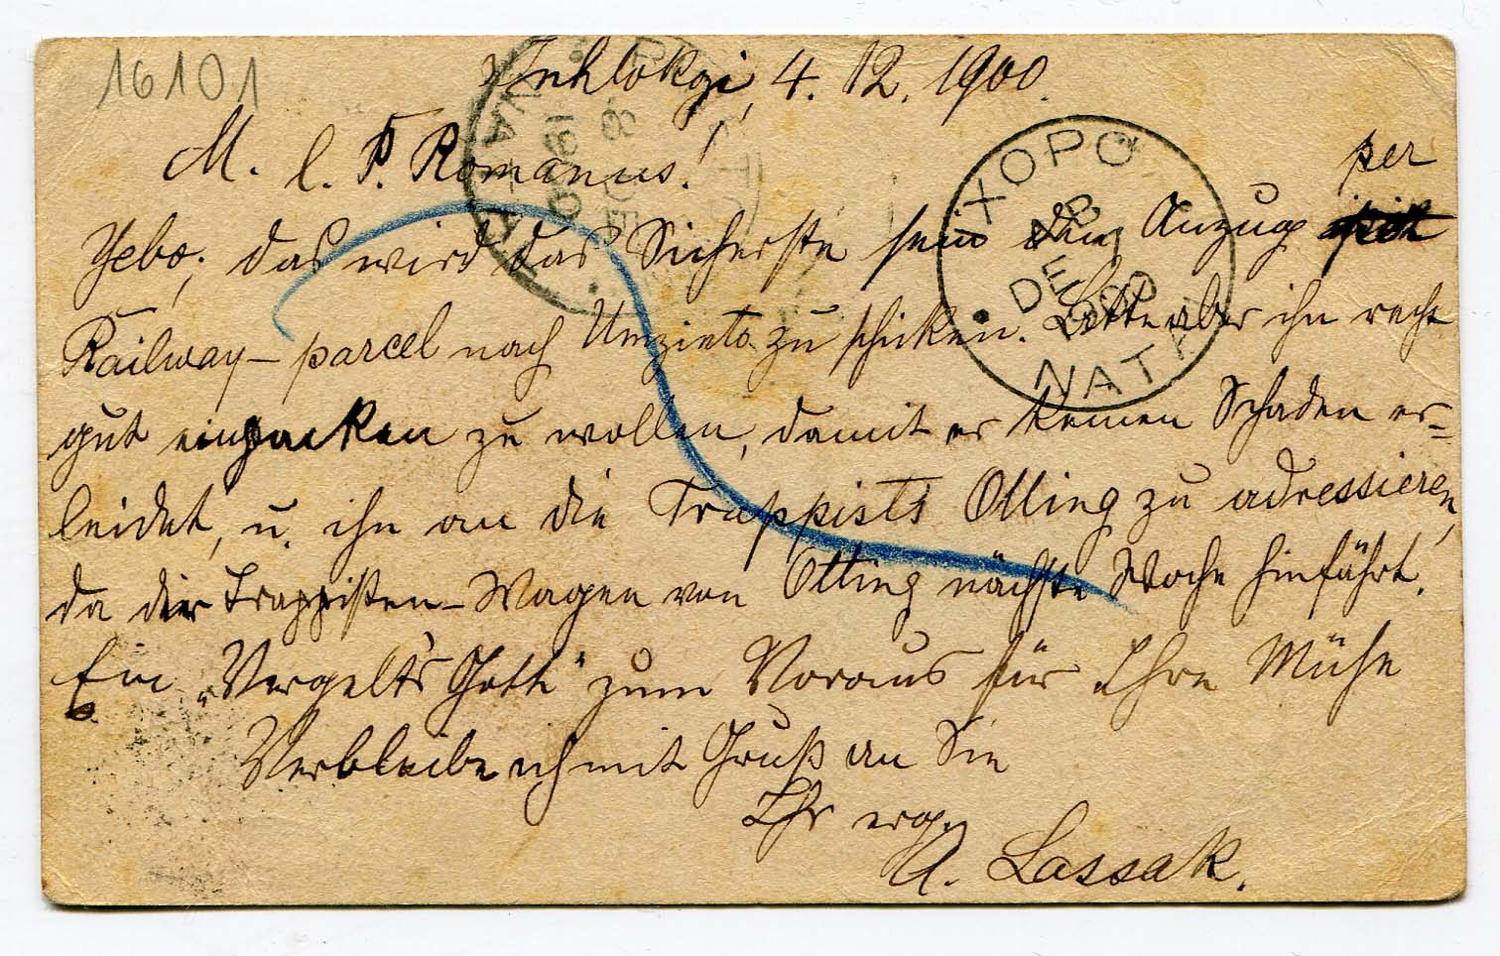 16101
Inhlokzi, 4. 12. 1900.
M. l. P. Romanus!
per
Yebo; das wird das Sicherste sein den Anzug
Railway-parcel nach Umzinto zu schicken. Bitte aber ihn recht
gut einpacken zu wollen, damit er keinen Schaden er=
leidet, u. ihn an die Trappists Otting zu adressieren,
da der Trappisten-Wagen von Otting nächste Woche hinfährt.
Ein „Vergelt's Gott" zum Voraus für Ihre Mühe
Verbleibe ich mit Gruß an Sie
Ihr erg.
A. Lassak.
IXOPO
DE
1900
NATAL